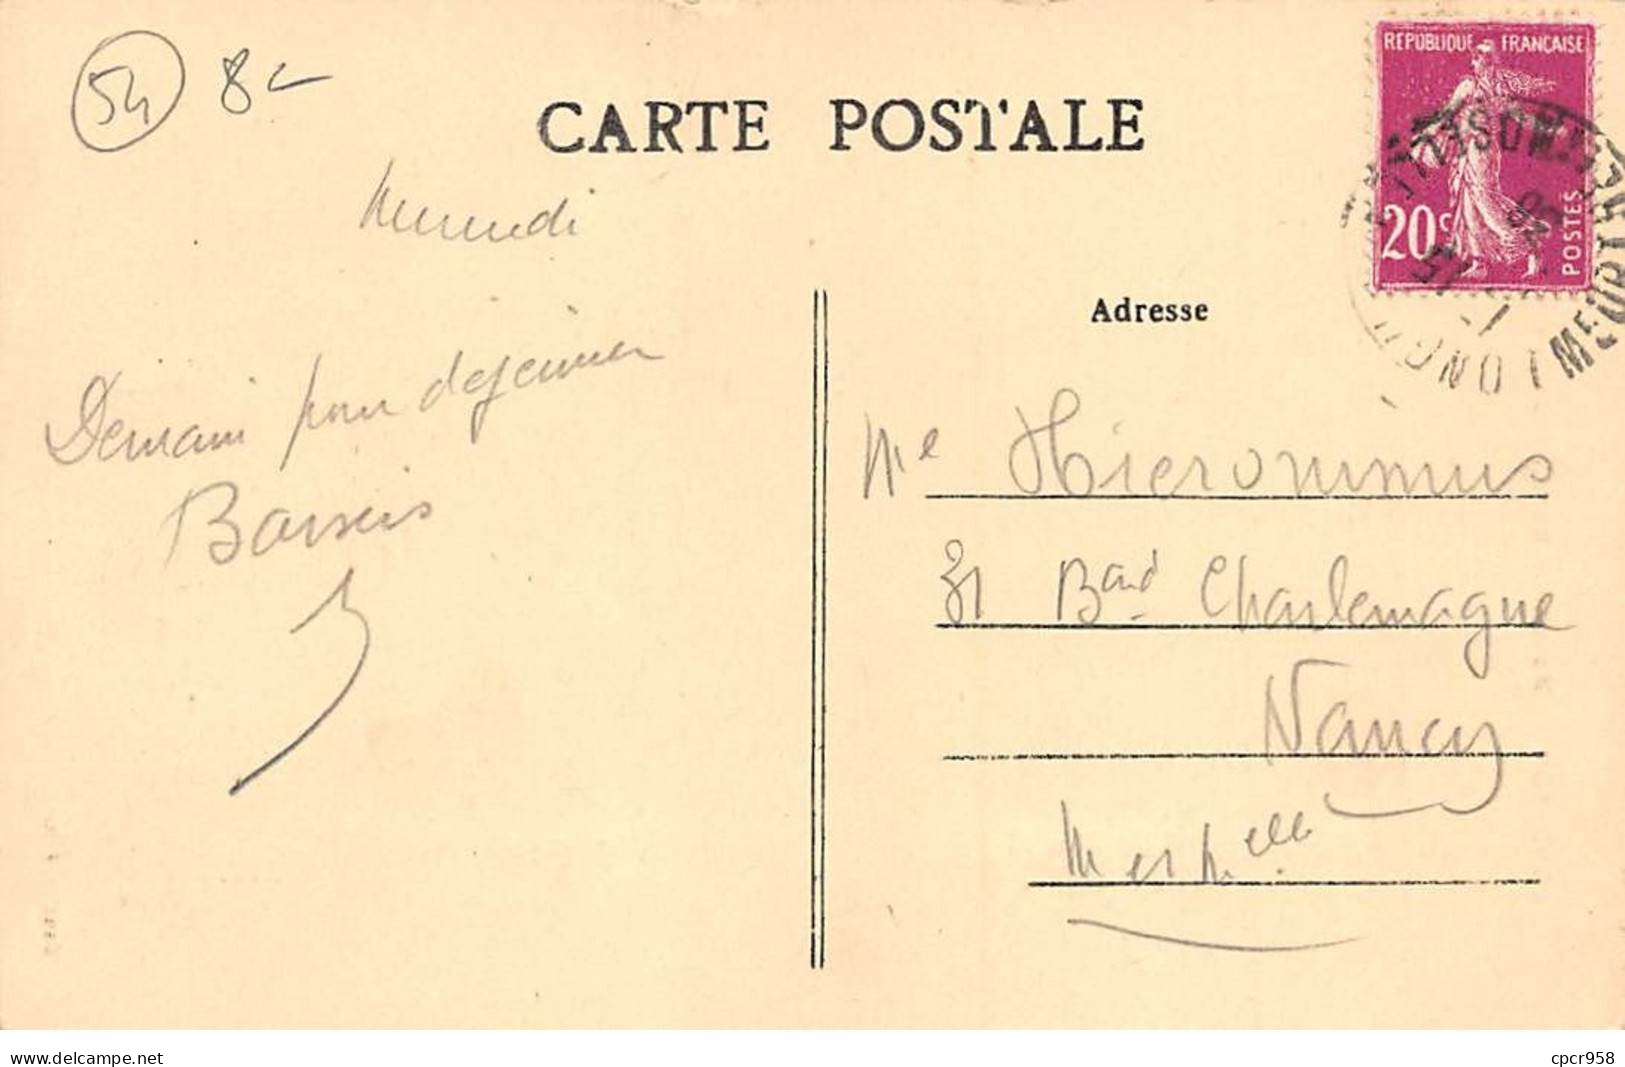 54 8-
CARTE POSTALE
REPUBLIQUE FRANCAISE
20c
POSTES
MEURTHE MOSELLE
LONGWY
Demain pour dejeuner
Baisers
Adresse
Me Hieronimus
31 Bard Charlemagne
Nancy
Mer the lle
delcampe.net
cpcr958